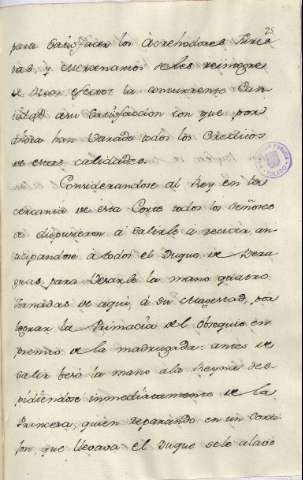 25
para satisfacer los Acrehedores
y de los reintegros
de la concurrente Can
tidad a su satisfaccion con que por
ahora han todos los Creditos
de estas calidades.
Considerandose al Rey en las
cercanias de esta Corte todos los Señores
se dispusieron a salirle a recivir an
ticipandose à todos el Duque de Vera
guas para besarle la mano quatro
Jornadas de aqui, à su Magestad, por
lograr la Primacia del obsequio en
premio de la madrugada: antes de
salir besò la mano ala Reyna des
pidiendose immediatamente de la
Primera, quien reparando en un
que llevava el Duque sele alavo